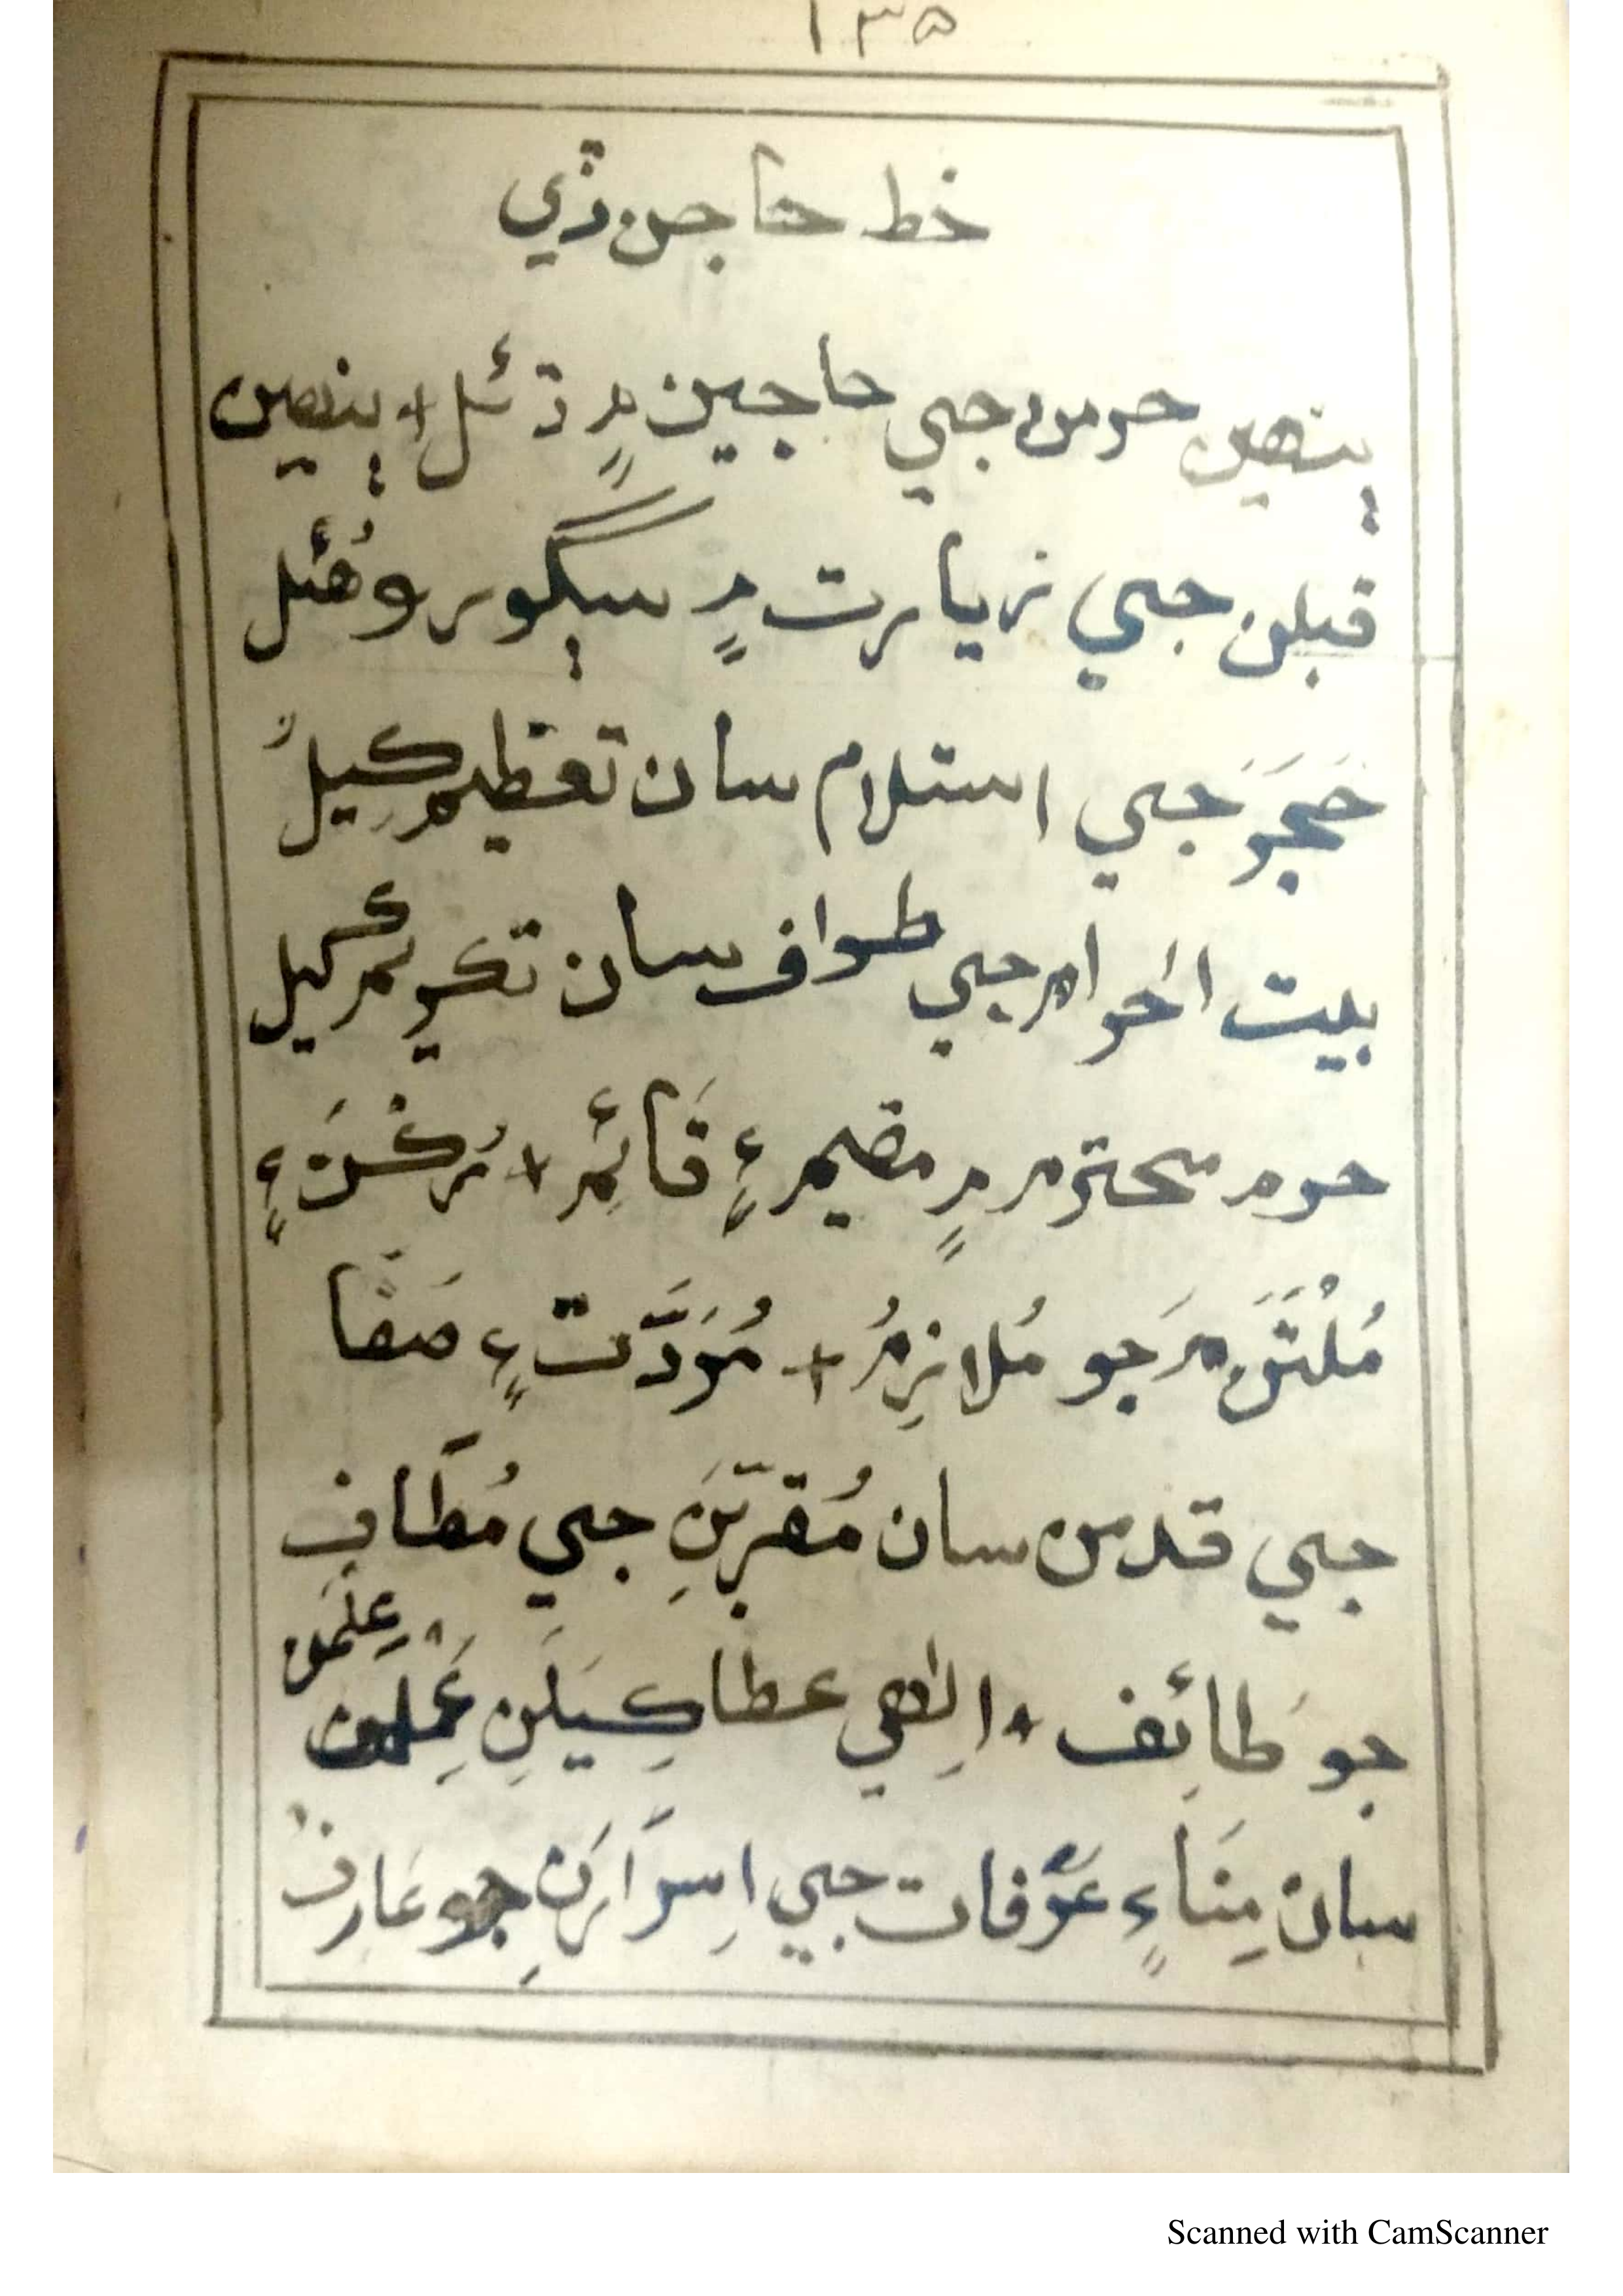 ١٣٥
خط حاجن ڏي
ٻنهين حرمن جي حاجين ۾ ڏئل + ٻنهين
قبلن جي زيارت ۾ سڳورو هُئل
حَجَرَ جي استلام سان تعظيم ڪِيلُ
بيت الحرام جي طواف سان تڪريم ڪيل
حرم محترم ۾ مقيم ۽ قَائِم + رُڪْنَ ۽
مُلْتَزَمَ جو مُلازِمُ + مُوَدَّت ۽ صَفَا
جي قدمن سان مُقرّبَنِ جي مُطَاف
جو طَائِف + اِلٰهي عطا ڪِيَلَنِ عِلمن
عَمِلن
سان مِنَا ۽ عَرَفات جي اِسرَارَنِ جو عَارِف
Scanned with CamScanner